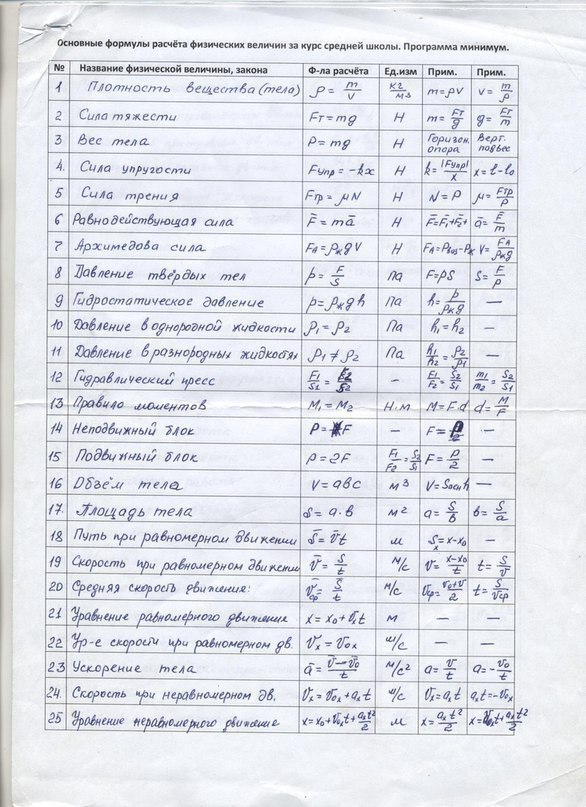 Основные формулы расчёта физических величин за курс средней школы. Программа минимум.
№ Название физической величины, закона Ф-ла расчёта Ед.изм Прим. Прим.
1 Плотность вещества (тела) ρ = m/V кг/м³ m=ρV v = m/ρ
2 Сила тяжести Fт = mg Н m = Fт/g g = Fт/m
3 Вес тела P = mg Н Горизон. опора Верт. подвес
4. Сила упругости Fупр = -kx Н k = |Fупр|/x x = l - l₀
5 Сила трения Fтр = μN Н N = P μ = Fтр/P
6 Равнодействующая сила F̄ = mā Н F̄=F̄₁+F̄₂+ ā = F̄/m
7 Архимедова сила FА = ρжgV Н FА = Pвоз - Pж V = FА/ρжg
8 Давление твёрдых тел p = F/S Па F=pS S = F/p
9 Гидростатическое давление p = ρжgh Па h = p/ρжg —
10 Давление в однородной жидкости p₁ = p₂ Па h₁ = h₂ —
11 Давление в разнородных жидкостях p₁ ≠ p₂ Па h₁/h₂ = ρ₂/ρ₁ —
12 Гидравлический пресс F₁/S₁ = F₂/S₂ - F₁/F₂ = S₂/S₁ m₁/m₂ = S₂/S₁
13 Правило моментов M₁ = M₂ Н·м M = F·d d = M/F
14 Неподвижный блок P = F - —
15 Подвижный блок P = 2F F₁/F₂ = S₂/S₁ F = P/2 —
16 Объём тела V = abc м³ V = Sоснh —
17. Площадь тела S = a·b м² a = S/b b = S/a
18 Путь при равномерном движении S̄ = v̄t м Sₓ = x-x₀ —
19 Скорость при равномерном движении v̄ = S̄/t м/с v = x-x₀/t t = S/v
20 Средняя скорость движения: v̄ср = S̄/t м/с vср = v₀+v/2 t = S/vср
21 Уравнение равномерного движения x = x₀+vₓt м — —
22 Ур-е скорости при равномерном дв. vₓ = v₀ₓ м/с — —
23 Ускорение тела ā = v̄-v̄₀/t м/с² a = v/t a = -v₀/t
24. Скорость при неравномерном дв. vₓ = v₀ₓ+aₓt м/с vₓ = aₓt aₓt = -v₀ₓ
25 Уравнение неравномерного движение x = x₀+v₀ₓt+aₓt²/2 м x = aₓt²/2 x = v₀ₓt+aₓt²/2